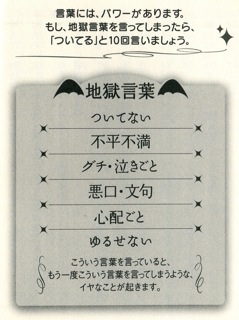 言葉には、パワーがあります。
もし、地獄言葉を言ってしまったら、
「ついてる」と10回言いましょう。
地獄言葉
ついてない
不平不満
グチ・泣きごと
悪口・文句
心配ごと
ゆるせない
こういう言葉を言っていると、
もう一度こういう言葉を言ってしまうような、
イヤなことが起きます。